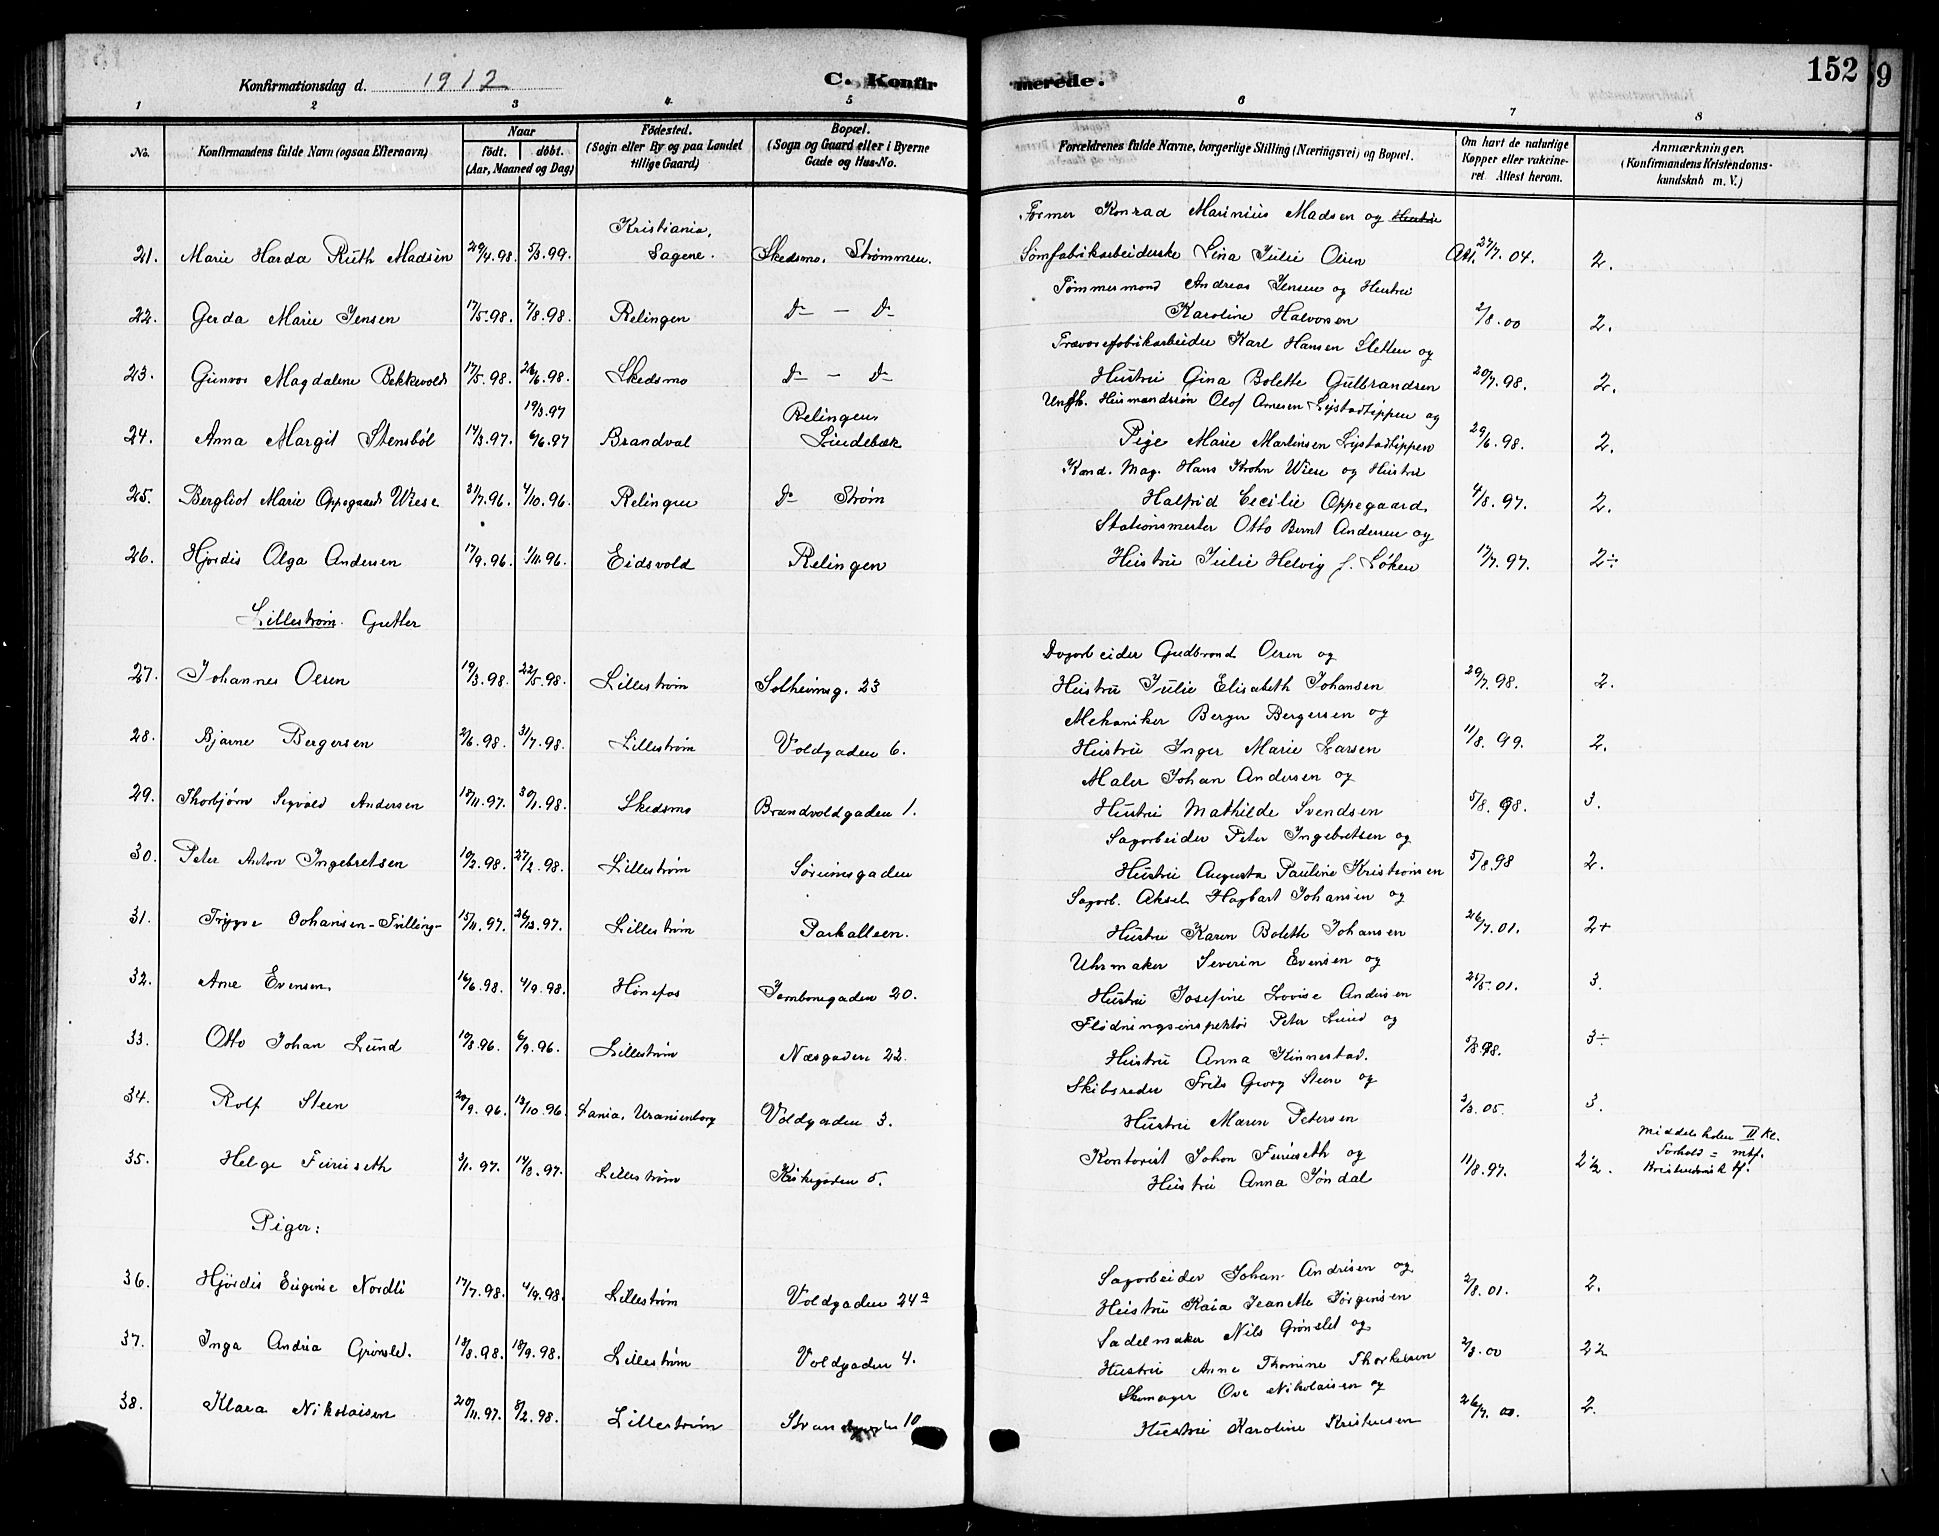 Konfirmationsdag d. 1912 C. Konfirmerede. 152 9
1 2 3 4 5 6 7 8
No. Konfirmandens fulde Navn (ogsaa Efternavn) Naar født. døbt. (Aar, Maaned og Dag) Fødested. (Sogn eller By og paa Landet tillige Gaard) Bopæl. (Sogn og Gaard eller i Byerne Gade og Hus-No. Forældrenes fulde Navne, borgerlige Stilling (Næringsvei) og Bopæl. Om havt de naturlige Kopper eller vakcineret Attest herom. Anmærkninger. (Konfirmandens Kristendomskundskab m. V.)
Kristiania, Former Konrad Marinius Madsen og Hustru
21. Marie Harda Ruth Madsen 29/4.98. 5/3.99. Sagene. Skedsmo, Strømmen. Sømfabrikarbeiderske Lina Julie Olsen Att. 27/7.04. 2.
Tømmermand Andreas Jensen og Hustru
22. Gerda Marie Jensen 17/5.98. 7/8.98. Relingen Do — Do Karoline Halvorsen 2/8.00 2.
Trævarefabrikarbeider Karl Hansen Sletten og
23. Gunvor Magdalene Bekkevold 17/5.98. 26/6.98. Skedsmo Do — Do Hustru Gina Bolette Gulbrandsen 20/7.98. 2.
19/3.97 Relingen, Ungk. Husmandssøn Olof Arnesen Lystadtippen og
24. Anna Margit Stensbøl 14/3.97. 6/6.97 Brandval Lindebæk Pige Marie Martinsen Lystadtippen 29/6.98. 2.
Kand. Mag. Hans Krohn Wiese og Hustru
25. Bergliot Marie Oppegaard Wiese 31/7.96. 4/10.96. Relingen Do Strøm Halfrid Cecilie Oppegaard 4/8.97. 2.
Stationsmester Otto Bernt Andersen og
26. Hjørdis Olga Andersen 17/9.96. 1/11.96. Eidsvold Relingen Hustru Julie Helvig f. Løken 17/7.97. 2÷
Lillestrøm. Gutter
Dagarbeider Gudbrand Olsen og
27. Johannes Olsen 19/3.98. 22/5.98. Lillestrøm Solheimsg. 23 Hustru Julie Elisabeth Johansen 29/7.98. 2.
Mekaniker Berger Bergersen og
28. Bjarne Bergersen 2/6.98. 31/7.98. Lillestrøm Voldgaden 6. Hustru Inger Marie Larsen 11/8.99. 2.
Maler Johan Andersen og
29. Thorbjørn Sigvald Andersen 18/11.97. 30/1.98. Skedsmo Brandvoldgaden 1. Hustru Mathilde Svendsen 5/8.98. 3.
Sagarbeider Peter Ingebretsen og
30. Peter Anton Ingebretsen 10/2.98. 27/2.98. Lillestrøm Sørumsgaden Hustru Augusta Pauline Kristiansen 5/8.98 2.
Sagarb. Aksel Hagbart Johansen og
31. Trygve Johansen-Trilling- 15/11.97. 26/12.97. Lillestrøm Parkalleen. Hustru Karen Bolette Johansen 26/7.01. 2+
Uhrmaker Severin Evensen og
32. Arne Evensen. 16/6.98. 4/9.98. Hønefos Jernbanegaden 20. Hustru Josefine Lovise Andersen 25/5.01. 3.
Flødningsinspektør Peter Lund og
33. Otto Johan Lund 10/8.96. 6/9.96. Lillestrøm Næsgaden 22. Hustru Anna Kinnestad. 5/8.98. 3÷
Skibsreder Frits Georg Steen og
34. Rolf Steen 20/9.96. 18/10.96. Kania, Uranienborg Voldgaden 3. Hustru Maren Petersen 2/3.05. 3.
Middelskolen II Kl.
35. Helge Furuseth 3/1.97. 14/3.97. Lillestrøm Kirkegaden 5. Kontorist Johan Furuseth og 11/8.97. 2½. Forhold = mtf.
Hustru Anna Jøndal Kristendomsk tf.
Piger:
Sagarbeider Johan Andersen og
36. Hjørdis Eugenie Nordli 17/7.98. 4/9.98. Lillestrøm Voldgaden 24a Hustru Kaia Jeanette Jørgensen 2/8.01. 2.
Sadelmaker Nils Grønslet og
37. Inga Andrea Grønslet. 13/8.98. 18/9.98. Lillestrøm Voldgaden 4. Hustru Anne Thomine Thorkelsen 2/3.00 22
Skomager Ove Nikolaisen og
38. Klara Nikolaisen 20/11.97. 8/2.98. Lillestrøm 10 Hustru Karoline Kristensen 26/7.00. 2.